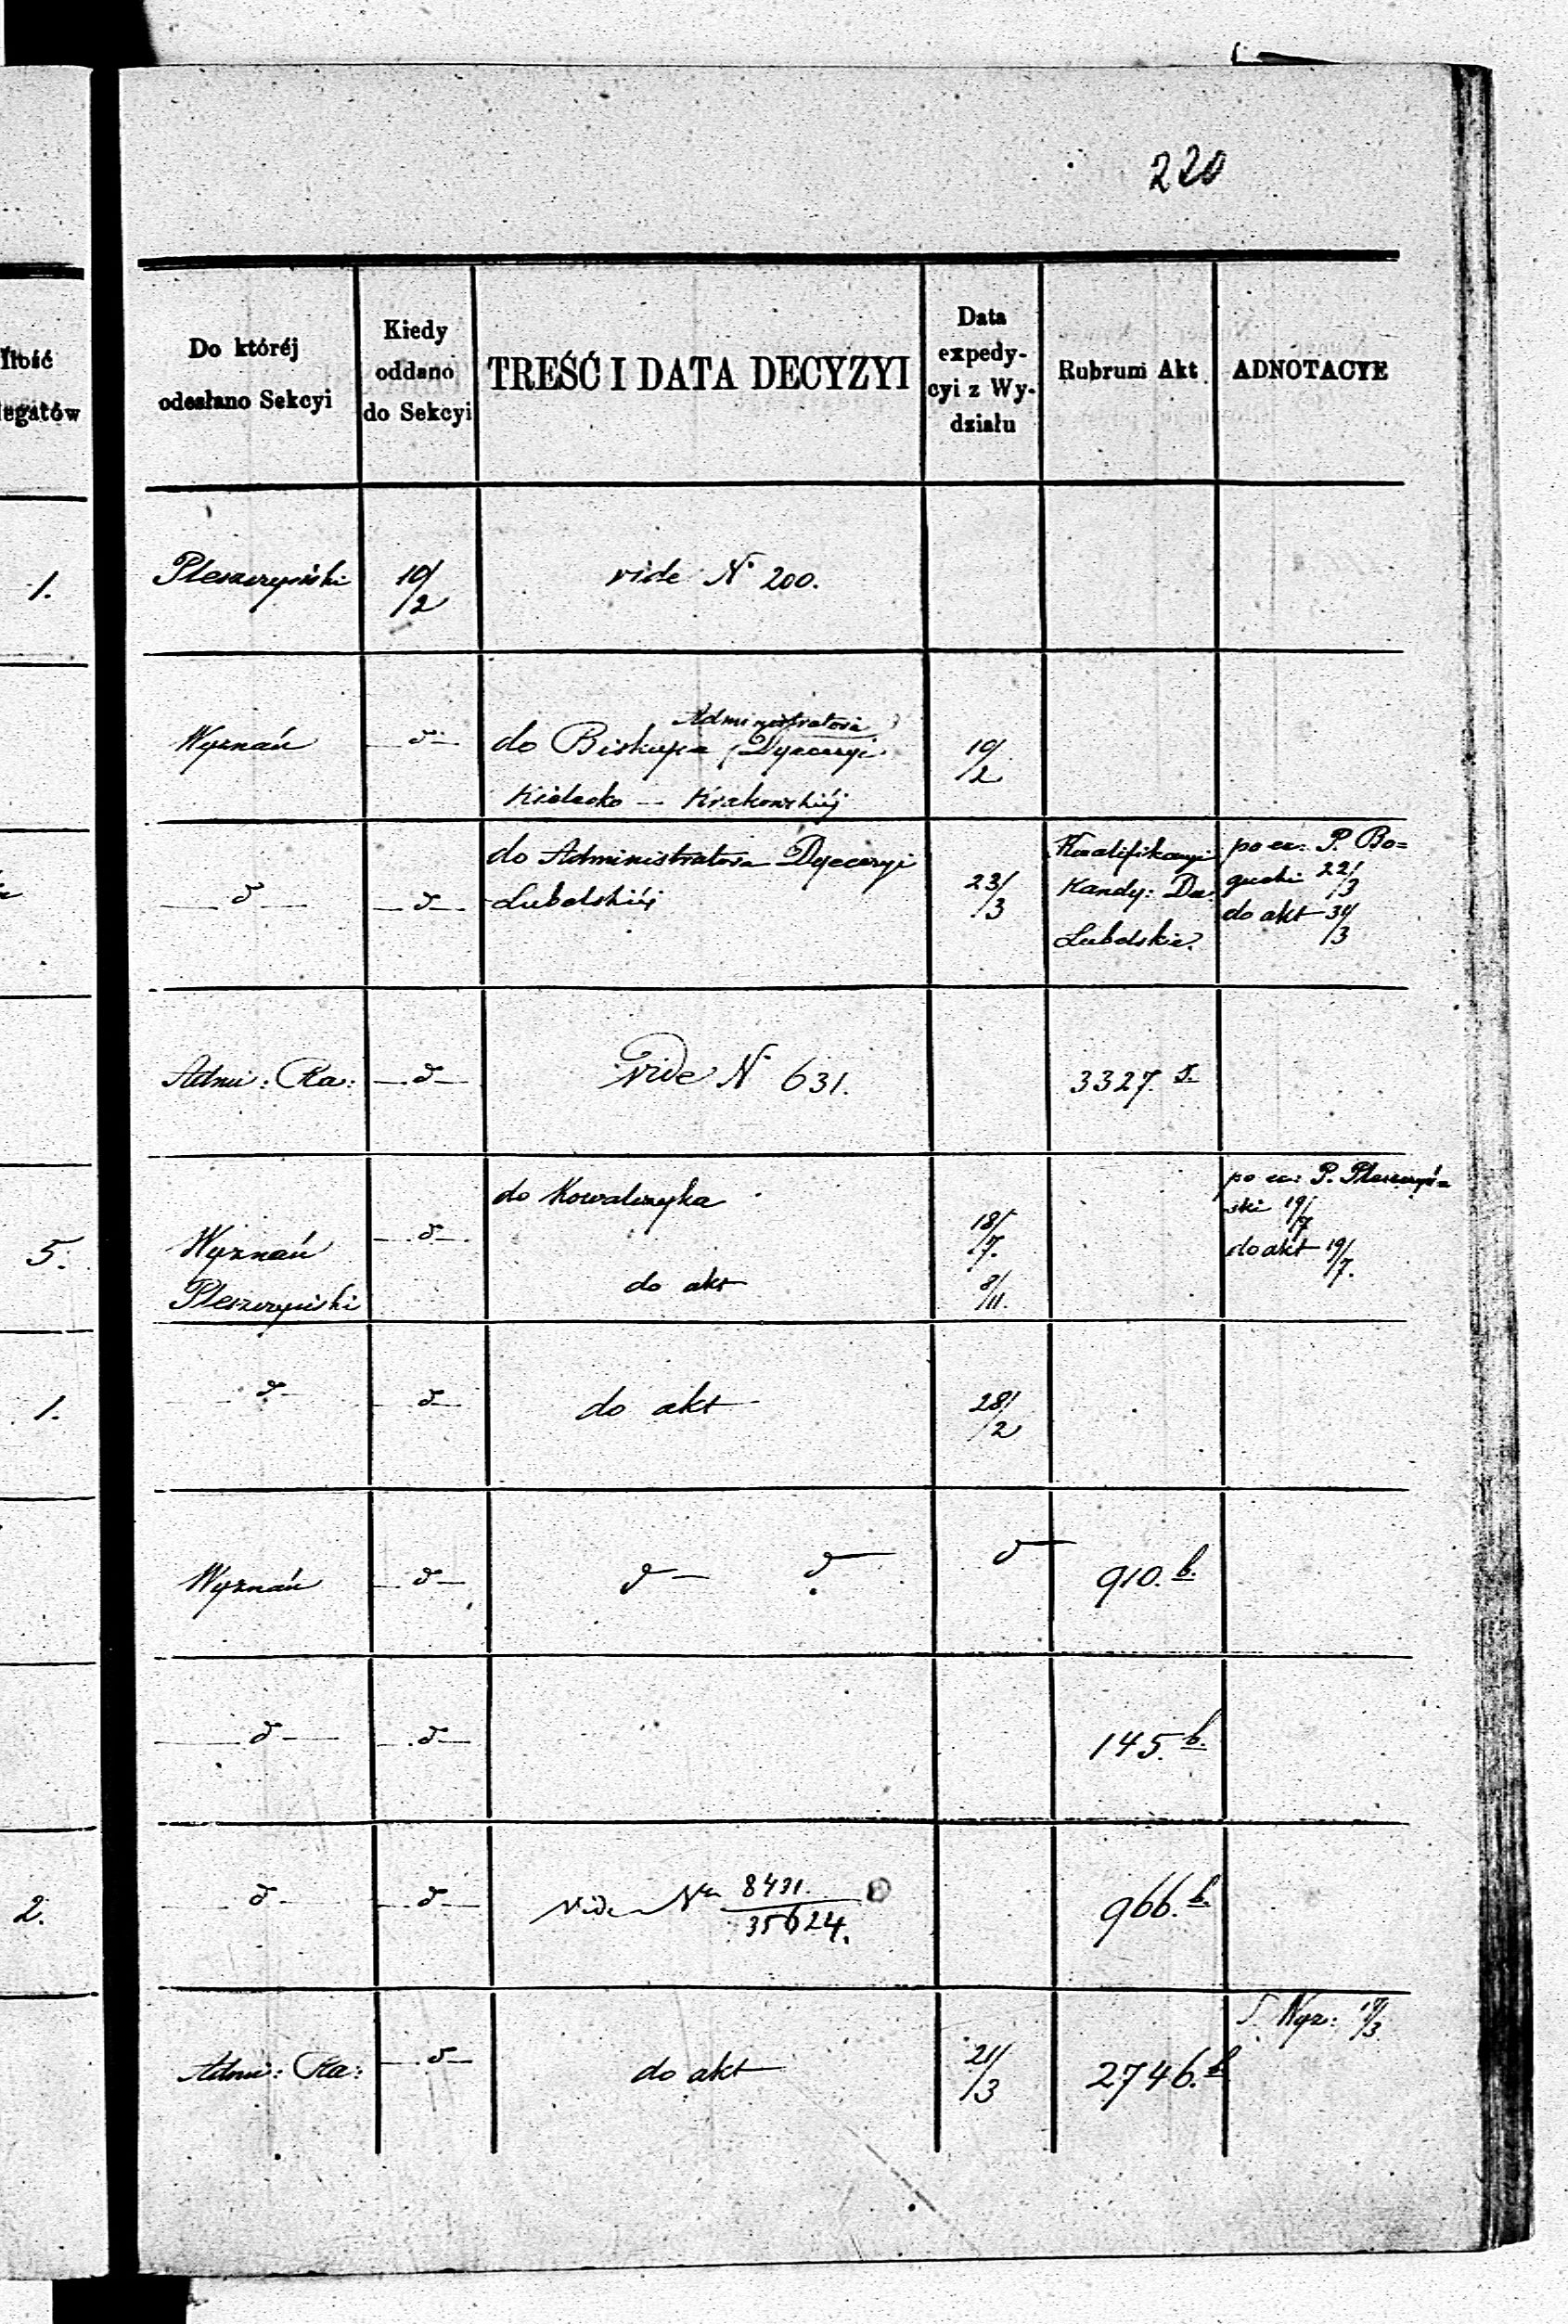 220
Ilość
legatów
Do któréj
odesłano Sekcyi
Kiedy
oddano
do Sekcyi
TREŚĆ I DATA DECYZYI
Data
expedy-
cyi z Wy-
działu
Rubrum Akt
ADNOTACYE
1.
Pleszczyński
10/2
vide N 200.
Wyznań
— d —
Administratora
do Biskupa Dyecezyi
Kielecko — Krakowskiéj
10/2
— d —
— d —
do Administratora Dyecezyi
Lubelskiéj
23/3
Kwalifikacyi
Kandy: Du:
Lubelskie.
po ex: P. Bo=
gucki 22/3
do akt 31/3
Admi: Ra:
— d —
Vide N 631.
3327.
5.
Wyznań
Pleszczyński
— d —
do Kowalczyka
do akt
18/7.
8/11.
po ex: P. Pleszczyń=
ski 19/7
do akt 19/7.
1.
— d —
— d —
do akt
28/2
Wyznań
— d —
d — d —
d —
910. b.
— d —
— d —
145. b.
2.
— d —
— d —
vide N 8431./35624.
966. b.
Admi: Ra:
— d —
do akt
21/3
2746. b.
S. Wyz: